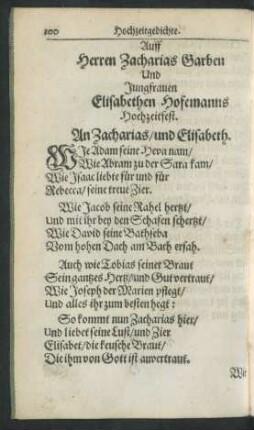 100 Hochzeitgedichte.
Auff
Herren Zacharias Garben
Und
Jungfrauen
Elisabethen Hofemanns
Hochzeitfest.
An Zacharias/ und Elisabeth.
WIe Adam seine Heva nam/
Wie Abram zu der Sara kam/
Wie Isaac liebte für und für
Rebecca/ seine treue Zier.
Wie Jacob seine Rahel hertzt/
Und mit ihr bey den Schafen schertzt/
Wie David seine Bathseba
Vom hohen Dach am Bath ersah.
Auch wie Tobias seiner Braut
Sein gantzes Hertz/ und Gut vertraut/
Wie Joseph der Marien pflegt/
Und alles ihr zum besten hegt:
So kommt nun Zacharias hier/
Und liebet seine Lust/ und Zier
Elisabet/ die keusche Braut/
Die ihm von Gott ist anvertraut.
Wie